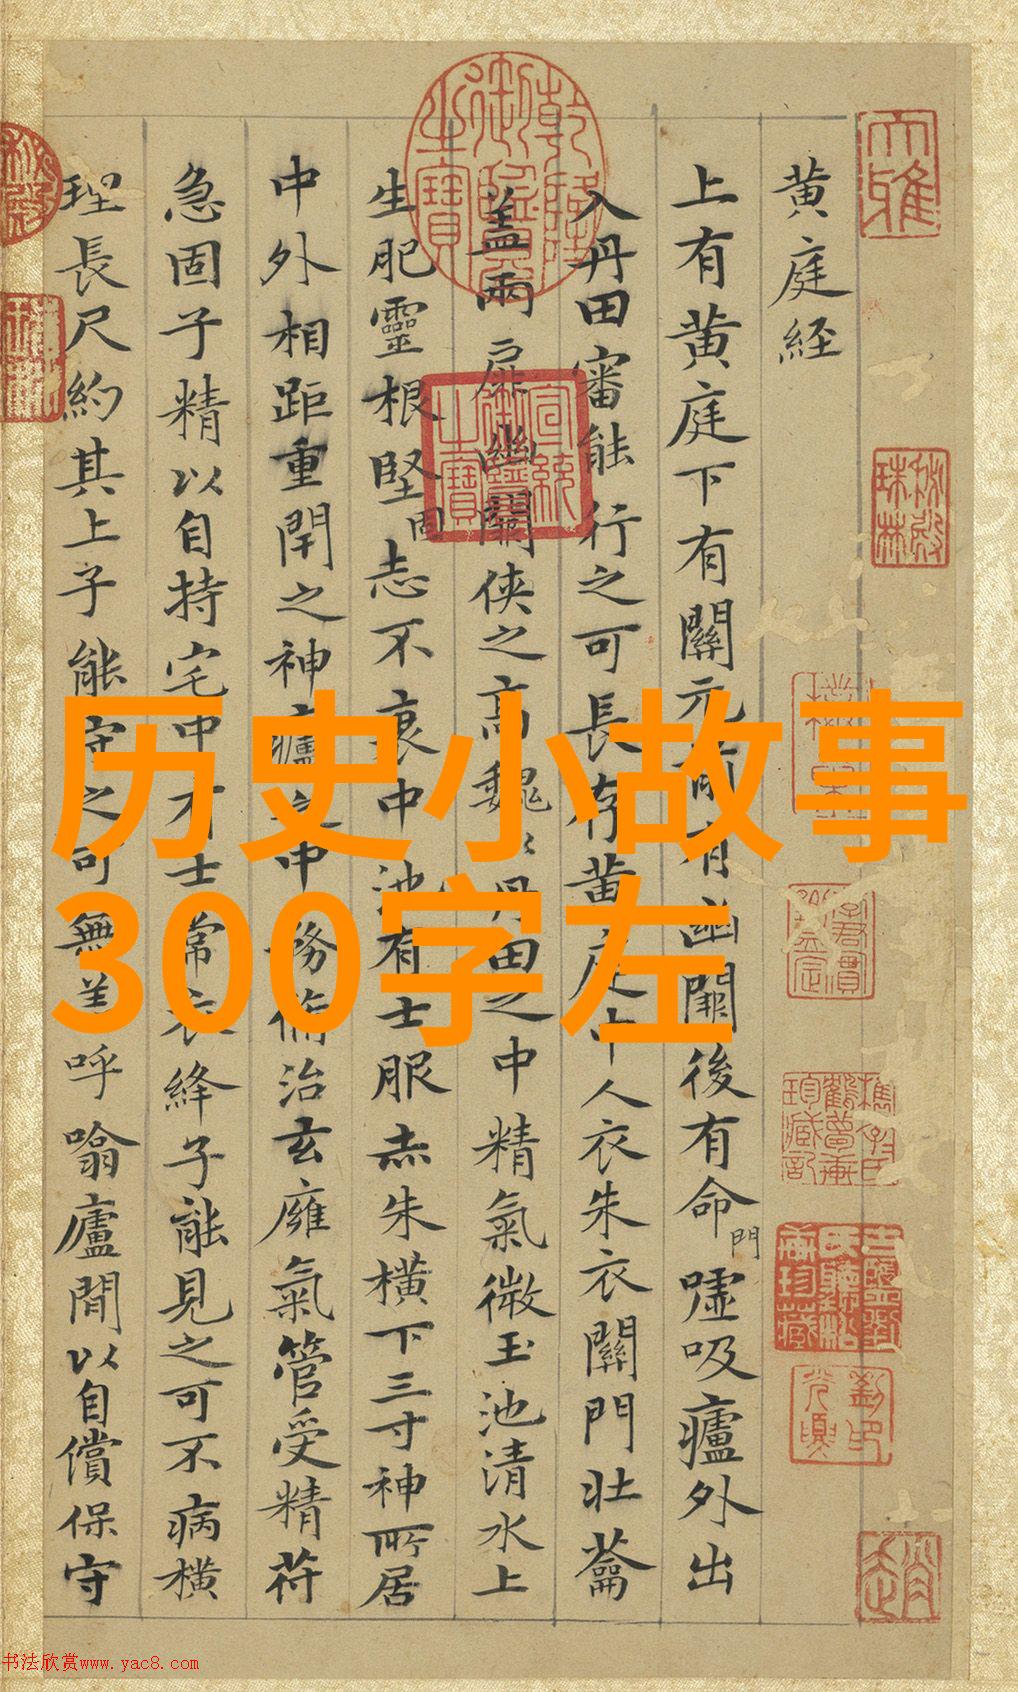 黄庭経
上有黄庭下有關元前有幽闕後有命門嘘吸廬外出
入丹田審能行之可長存黄庭中人衣朱衣關門壮蘥
蓋兩扉幽關侠之高魏丹田之中精氣微玉池清水上
生肥靈根堅固志不衰中池有士服赤朱横下三寸神所居
中外相距重閇之神廬之中務脩治玄廱氣管受精苻
急固子精以自持宅中有士常衣絳子能見之可不病横
理長尺約其上子能守之可無恙呼噏廬間以自償保守
历史小故事
300字左
大雅
乾隆御覽之寶
宣統御覽之寶
书法欣赏www.yac8.com